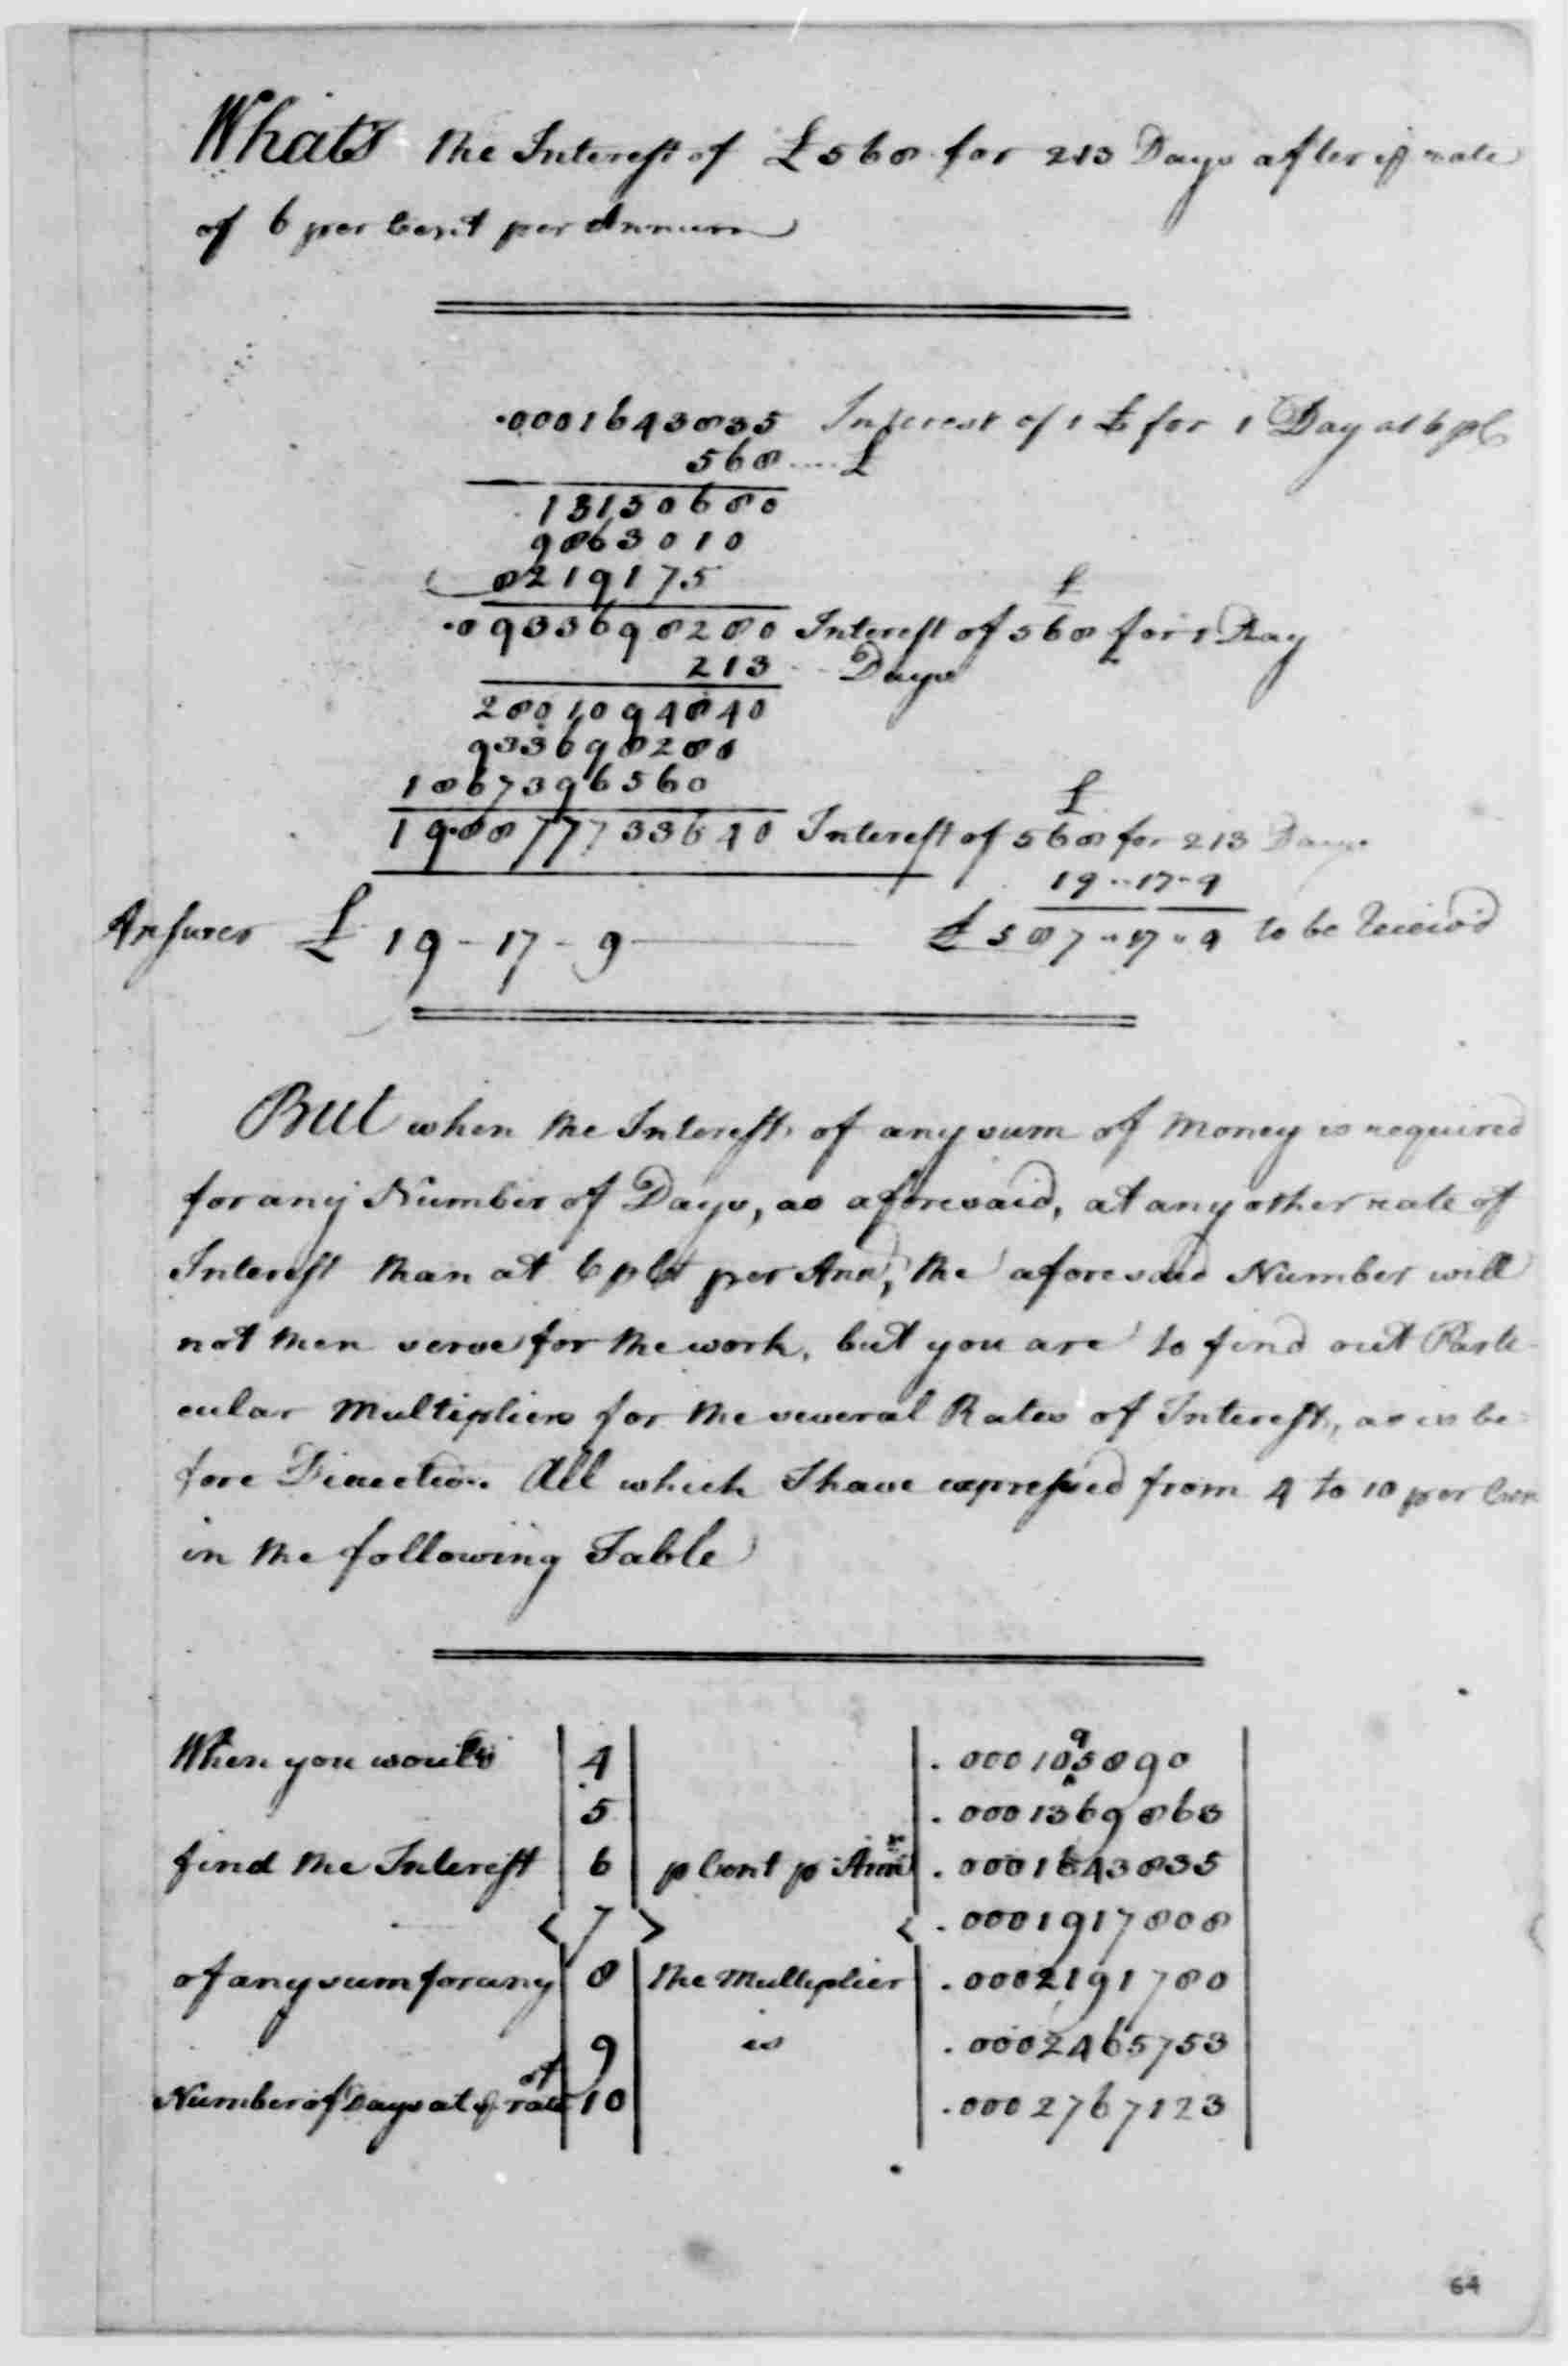 Whats the Interest of £568 for 213 Days after ye rate
of 6 per Cent per Annum
.0001643835 Interest of 1 £ for 1 Day at 6 pC
568 .... £
13150680
9863010
8219175
£
.0933698280 Interest of 568 for 1 Day
213 -- Days
2801094840
933698280
1867396560
£
19.8877733640 Interest of 568 for 213 Days
19--17-9
Answer £ 19-17-9 £587"17"9 to be Receiv'd
But when the Interest of any sum of Money is required
for any Number of Days, as aforesaid, at any other rate of
Interest than at 6 pCt per Ann, the aforesaid Number will
not then serve for the work, but you are to find out Parti
cular Multipliers for the several Rates of Interest, as is be
fore Direction. All which I have expressed from 4 to 10 per Cen
in the following Table
When you would 4 .00010 9 5890
5 .0001369863
find the Interest 6 p Cent p Ann .0001643835
7 .0001917808
of any sum for any 8 the Multiplier .0002191780
9 is .0002465753
Number of Days at ye rate of 10 .0002767123
64